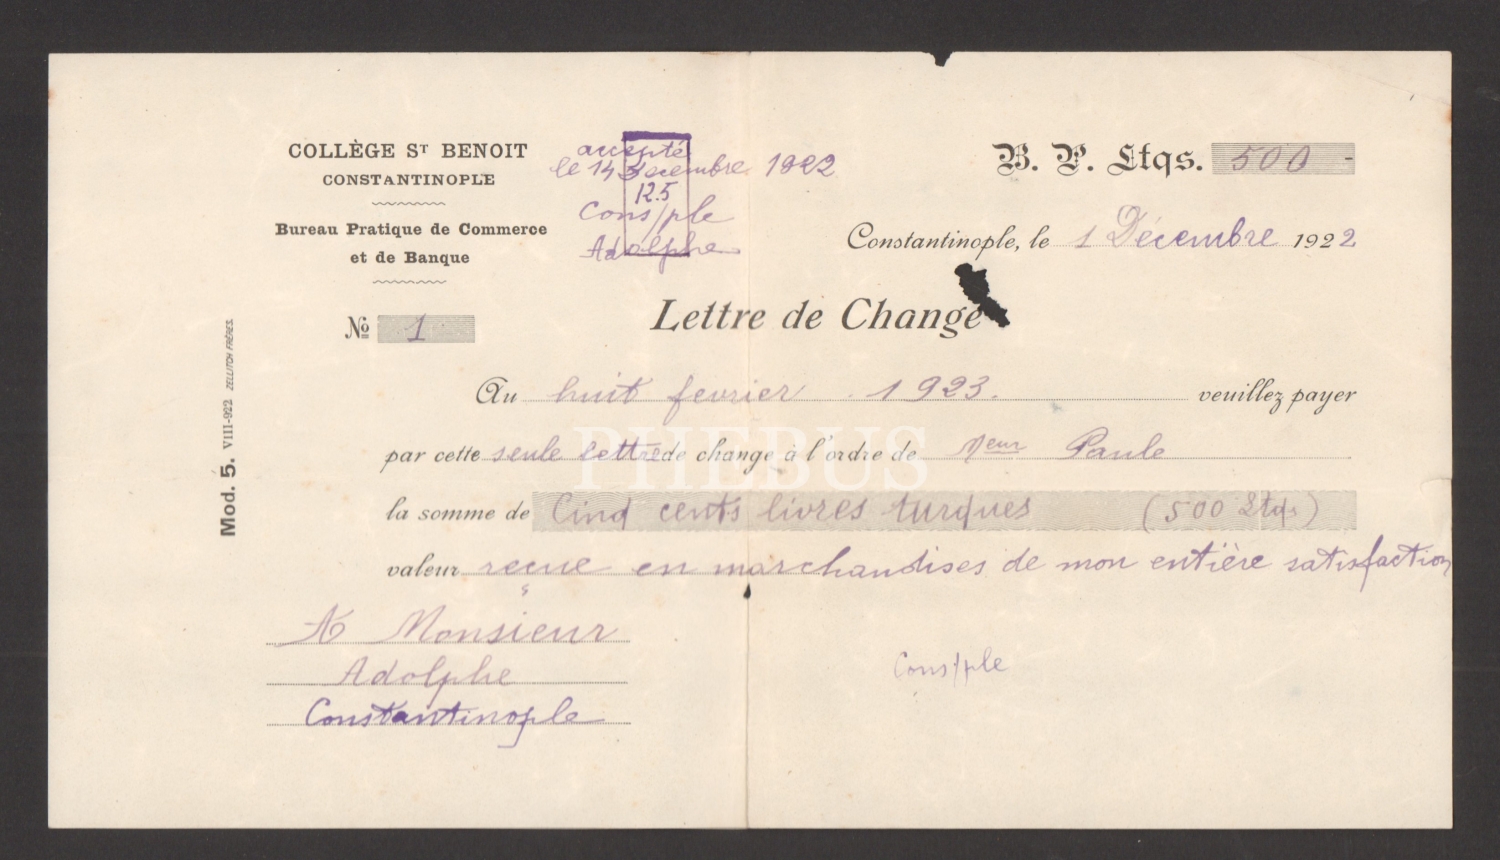 COLLÈGE Sᵀ BENOIT
CONSTANTINOPLE
Bureau Pratique de Commerce
et de Banque
accepté
le 14 Décembre 1922
12.5
Cons/ple
Adolphe
B. P. Ltqs. 500 -
Constantinople, le 1 Décembre 1922
Nº 1
Lettre de Change
Au huit fevrier 1923. veuillez payer
par cette seule lettre de change à l'ordre de Mᵉᵘʳ Paule
la somme de Cinq cents livres turques (500 Ltqs)
valeur reçue en marchandises de mon entière satisfaction
A Monsieur
Adolphe
Constantinople
Cons/ple
Mod. 5. VIII-922 ZELLITCH FRÈRES.
PHEBUS